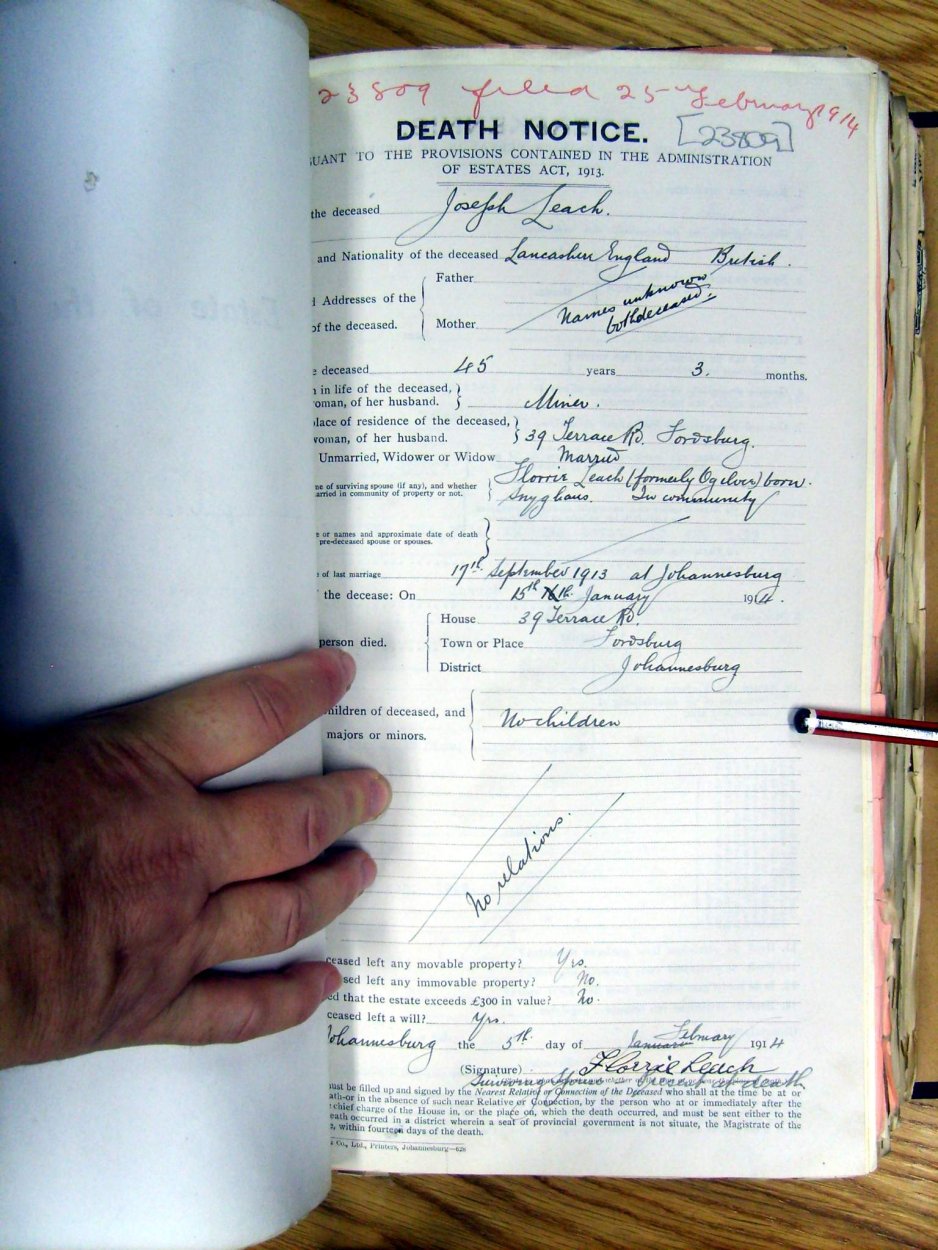 23809 filed 25th February 1914
DEATH NOTICE. [23809]
SUANT TO THE PROVISIONS CONTAINED IN THE ADMINISTRATION
OF ESTATES ACT, 1913.
the deceased Joseph Leach.
and Nationality of the deceased Lancashire England British.
Father
Addresses of the Names unknown
both deceased.
of the deceased. Mother
deceased 45 years 3. months.
n in life of the deceased,
oman, of her husband. Miner.
place of residence of the deceased,
woman, of her husband. 39 Terrace Rd. Fordsburg.
Unmarried, Widower or Widow Married
me of surviving spouse (if any), and whether Florrie Leach (formerly Ogilver) born
arried in community of property or not. Snyghans. In community
e or names and approximate date of death
pre-deceased spouse or spouses.
of last marriage 17th September 1913 at Johannesburg
the decease: On 15th 16th January 1914.
House 39 Terrace Rd.
person died. Town or Place Fordsburg
District Johannesburg
hildren of deceased, and No children
majors or minors.
No relations.
ceased left any movable property? Yes.
sed left any immovable property? No.
ed that the estate exceeds £300 in value? No.
ceased left a will? Yes.
Johannesburg the 5th day of January February 1914
(Signature) Florrie Leach
Surviving Spouse at death
ust be filled up and signed by the Nearest Relative or Connection of the Deceased who shall at the time be at or
ath—or in the absence of such near Relative or Connection, by the person who at or immediately after the
chief charge of the House in, or the place on, which the death occurred, and must be sent either to the
eath occurred in a district wherein a seat of provincial government is not situate, the Magistrate of the
, within fourteen days of the death.
Co., Ltd., Printers, Johannesburg—628